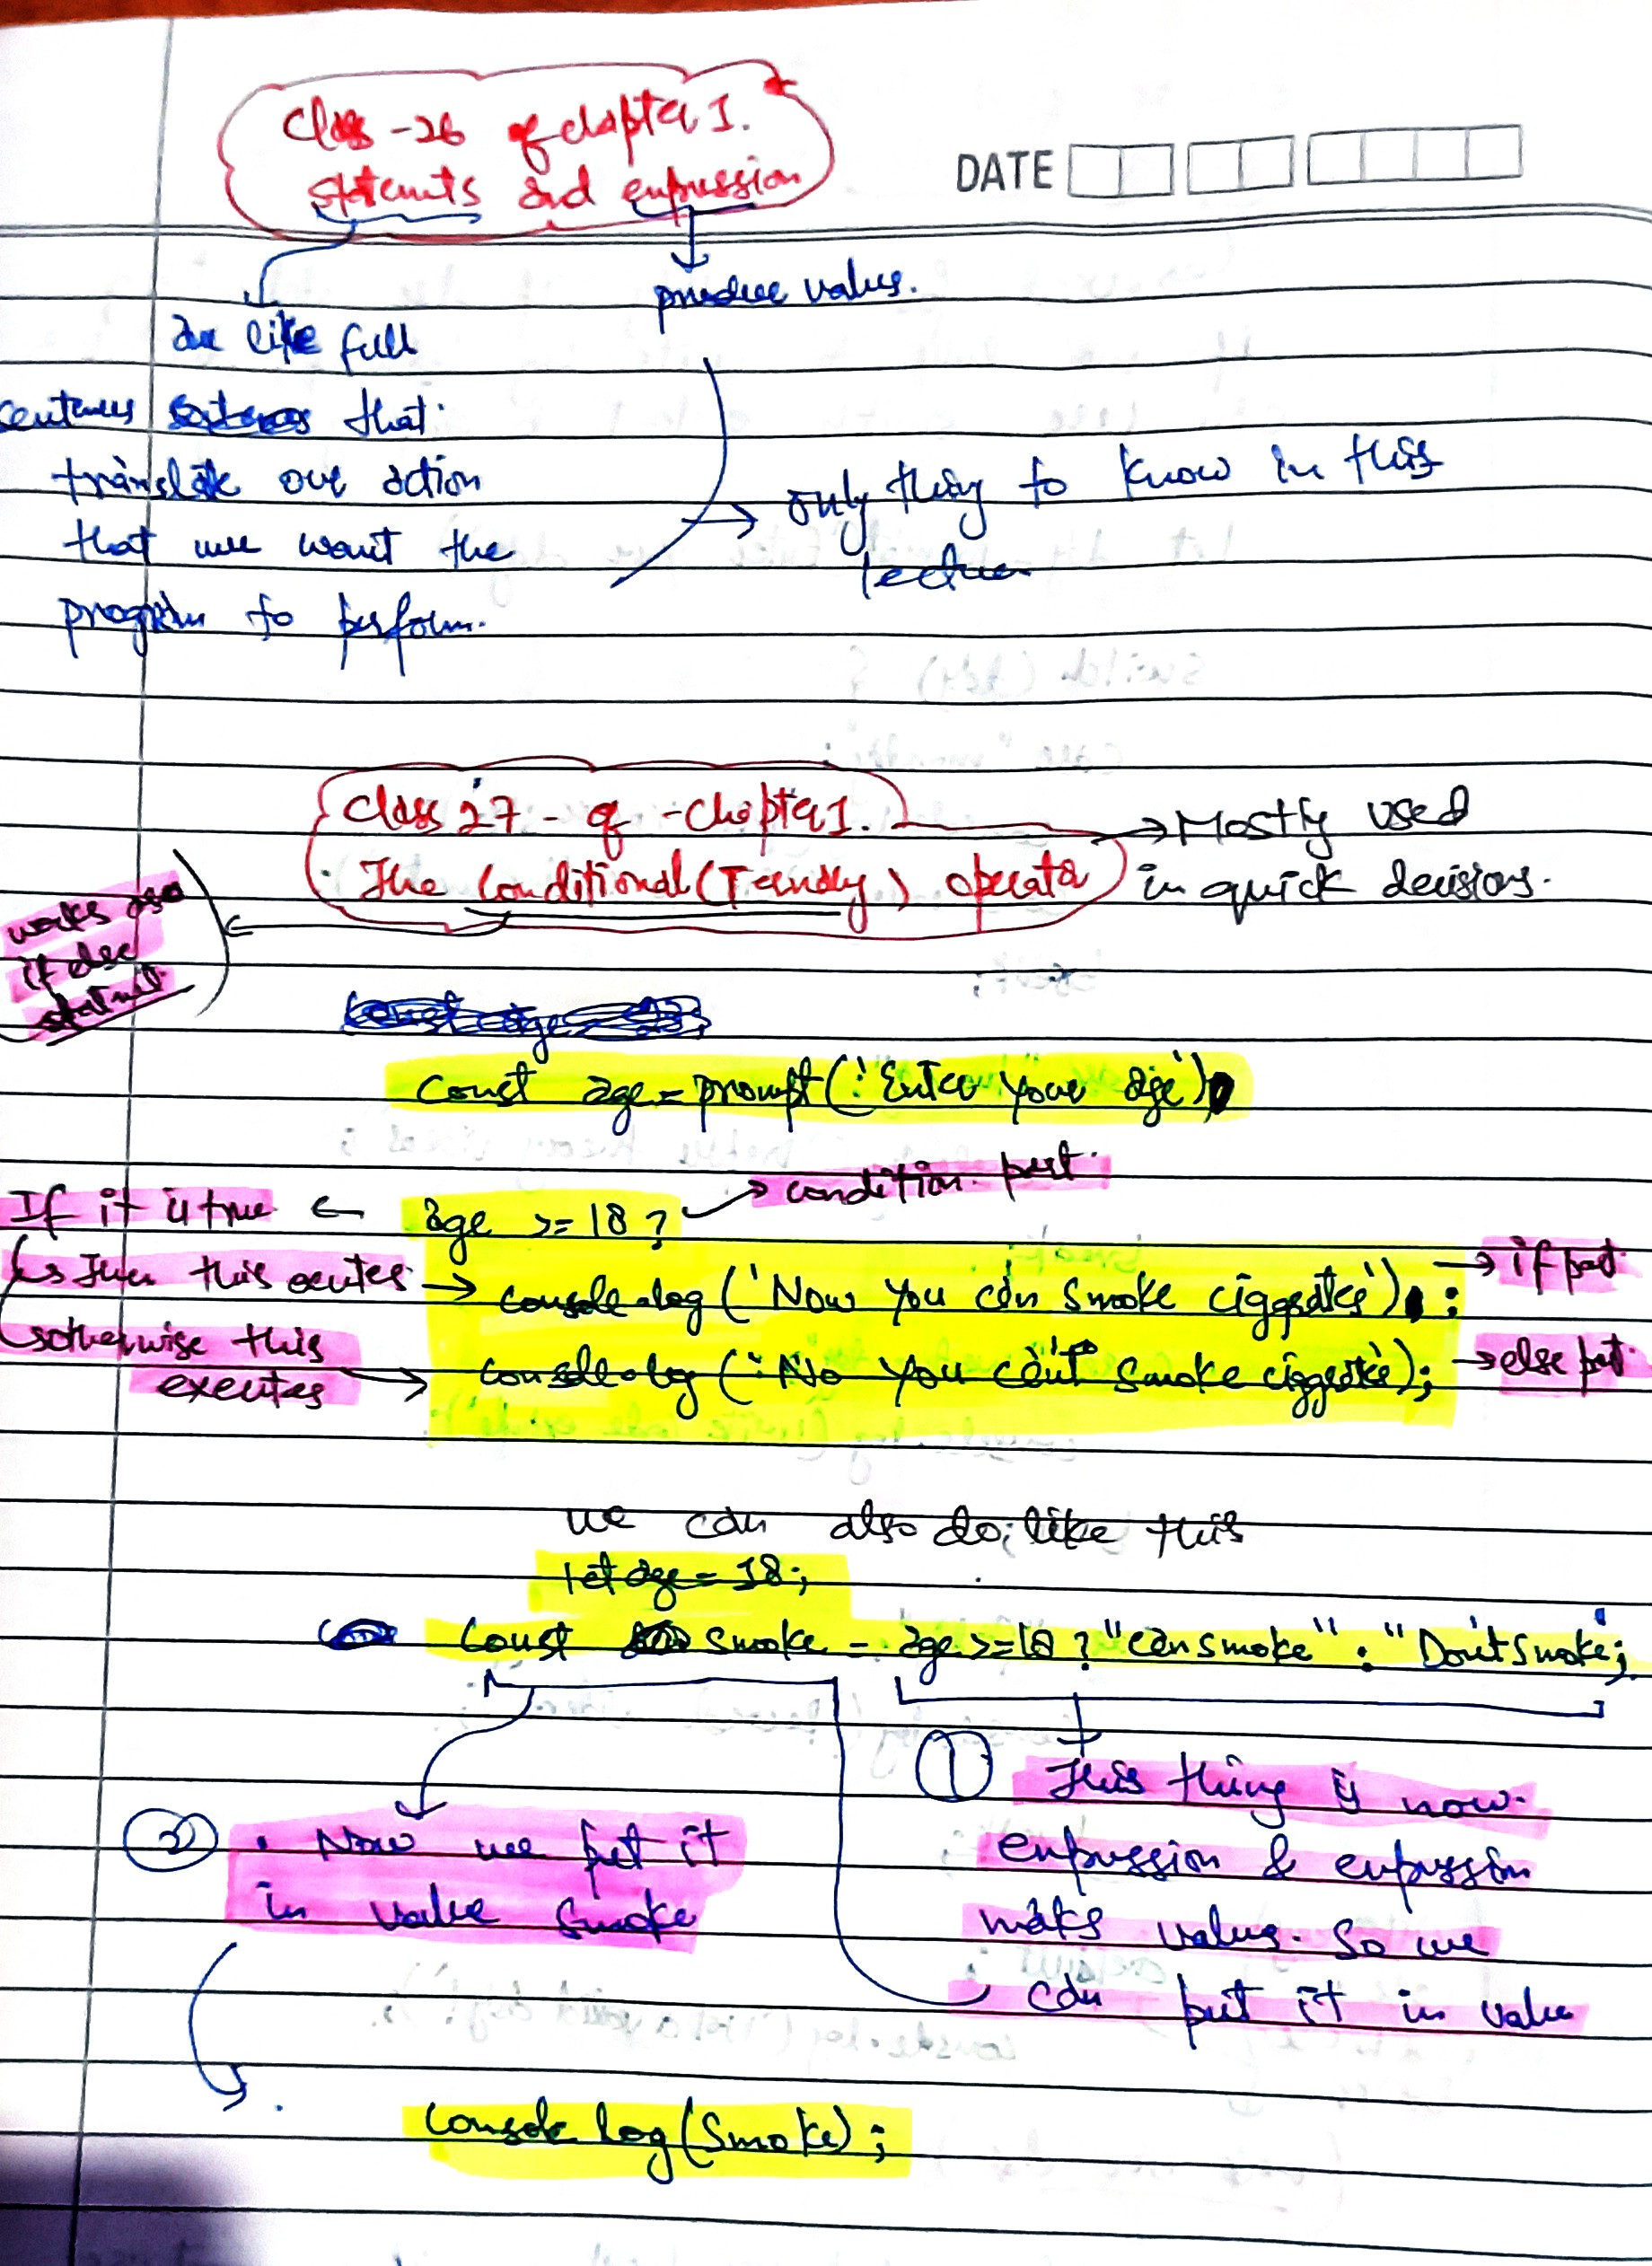 Class -26 of chapter 1.
statements and expression
DATE
produce values.
are like full
sentences that
translate our action
that we want the
program to perform.
only thing to know in this
lecture
Class 27 - of - Chapter 1.
The Conditional (Ternary) operator
→ Mostly used
in quick decisions.
works as a
if else
statment
const age = prompt('Enter your age')
→ condition part.
If it is true ← age >= 18 ?
↳ Then this executes → console.log('Now you can smoke ciggarates') : → if part
otherwise this
executes → console.log('No you can't smoke ciggarate'); → else part.
we can also do, like this
let age = 18;
const smoke = age >= 18 ? "can smoke" : "Don't smoke;
① This thing is now.
expression & expression
makes values. So we
can put it in value
② . Now we put it
in value smoke
console.log(smoke);